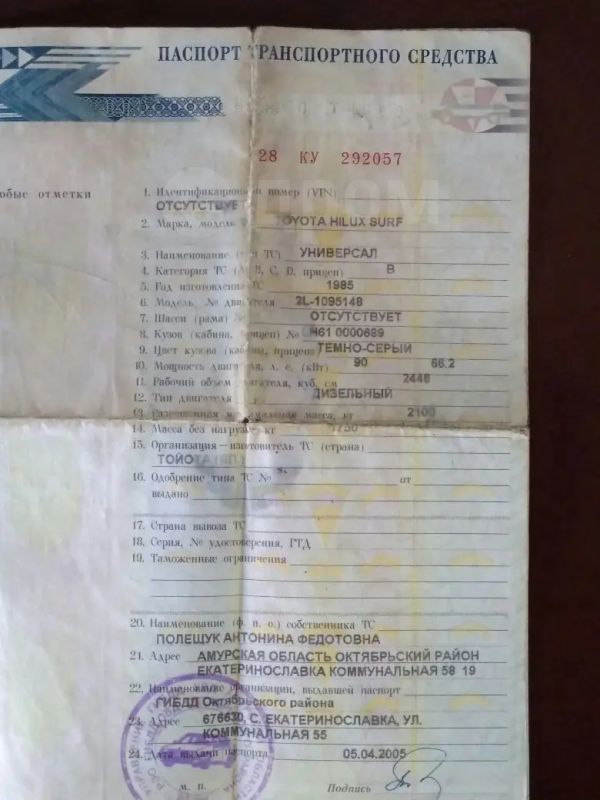 ПАСПОРТ ТРАНСПОРТНОГО СРЕДСТВА
28 КУ 292057
обые отметки
1. Идентификационный номер (VIN)
ОТСУТСТВУЕ
2. Марка, модель TOYOTA HILUX SURF
3. Наименование (тип ТС) УНИВЕРСАЛ
4. Категория ТС (А, В, С, D, прицеп) B
5. Год изготовления ТС 1985
6. Модель, № двигателя 2L-1095148
7. Шасси (рама) № ОТСУТСТВУЕТ
8. Кузов (кабина, прицеп) № 61 0000689
9. Цвет кузова (кабины, прицепа) ТЕМНО-СЕРЫЙ
10. Мощность двигателя, л. с. (кВт) 90 66.2
11. Рабочий объем двигателя, куб. см 2446
12. Тип двигателя ДИЗЕЛЬНЫЙ
13. Разрешенная максимальная масса, кг 2100
14. Масса без нагрузки, кг 1750
15. Организация–изготовитель ТС (страна)
ТОЙОТА
16. Одобрение типа ТС № от
выдано
17. Страна вывоза ТС
18. Серия, № удостоверения, ГТД
19. Таможенные ограничения
20. Наименование (ф. и. о.) собственника ТС
ПОЛЕЩУК АНТОНИНА ФЕДОТОВНА
21. Адрес АМУРСКАЯ ОБЛАСТЬ ОКТЯБРЬСКИЙ РАЙОН
ЕКАТЕРИНОСЛАВКА КОММУНАЛЬНАЯ 58 19
22. Наименование организации, выдавшей паспорт
ГИБДД Октябрьского района
23. Адрес 676630, С. ЕКАТЕРИНОСЛАВКА, УЛ.
КОММУНАЛЬНАЯ 55
24. Дата выдачи паспорта 05.04.2005
м. п. Подпись